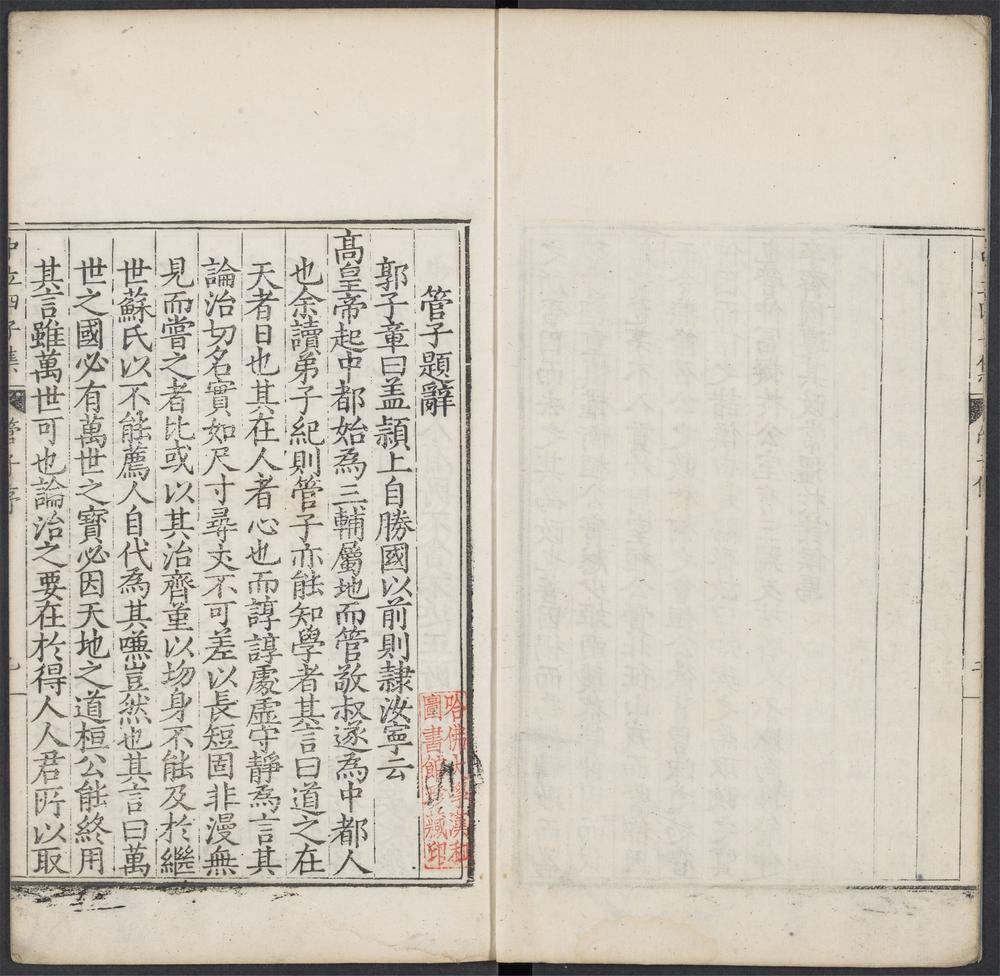 管子題辭
郭子章曰盖頴上自勝國以前則隷汝寧云
高皇帝起中都始爲三輔屬地而管敬叔遂爲中都人
也余讀弟子紀則管子亦能知學者其言曰道之在
天者日也其在人者心也而諄諄處虚守靜爲言其
論治切名實如尺寸尋丈不可差以長短固非漫無
見而嘗之者比或以其治齊董以坳身不能及於繼
世蘇氏以不能薦人自代為其嗛豈然也其言曰萬
世之國必有萬世之寳必因天地之道桓公能終用
其言雖萬世可也論治之要在於得人人君所以取
中立四子集
管子序
一
哈佛大學漢和
圖書館珍藏印